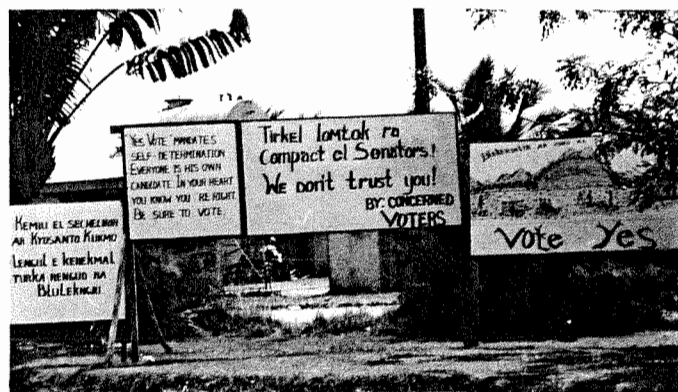 KEMIU EL SECHELIHIM
AR KYOSANTO KUKMO
LENGUL E KEREKMAL
TURKA RENGUD RA
BLULEKNGIU
YES VOTE MANDATES
SELF DETERMINATION
EVERYONE IS HIS OWN
CANDIDATE. IN YOUR HEART
YOU KNOW YOU RE RIGHT
BE SURE TO VOTE.
Tirkel lomtok ra
Compact el Senators!
We don't trust you!
BY: CONCERNED
VOTERS
Vote Yes